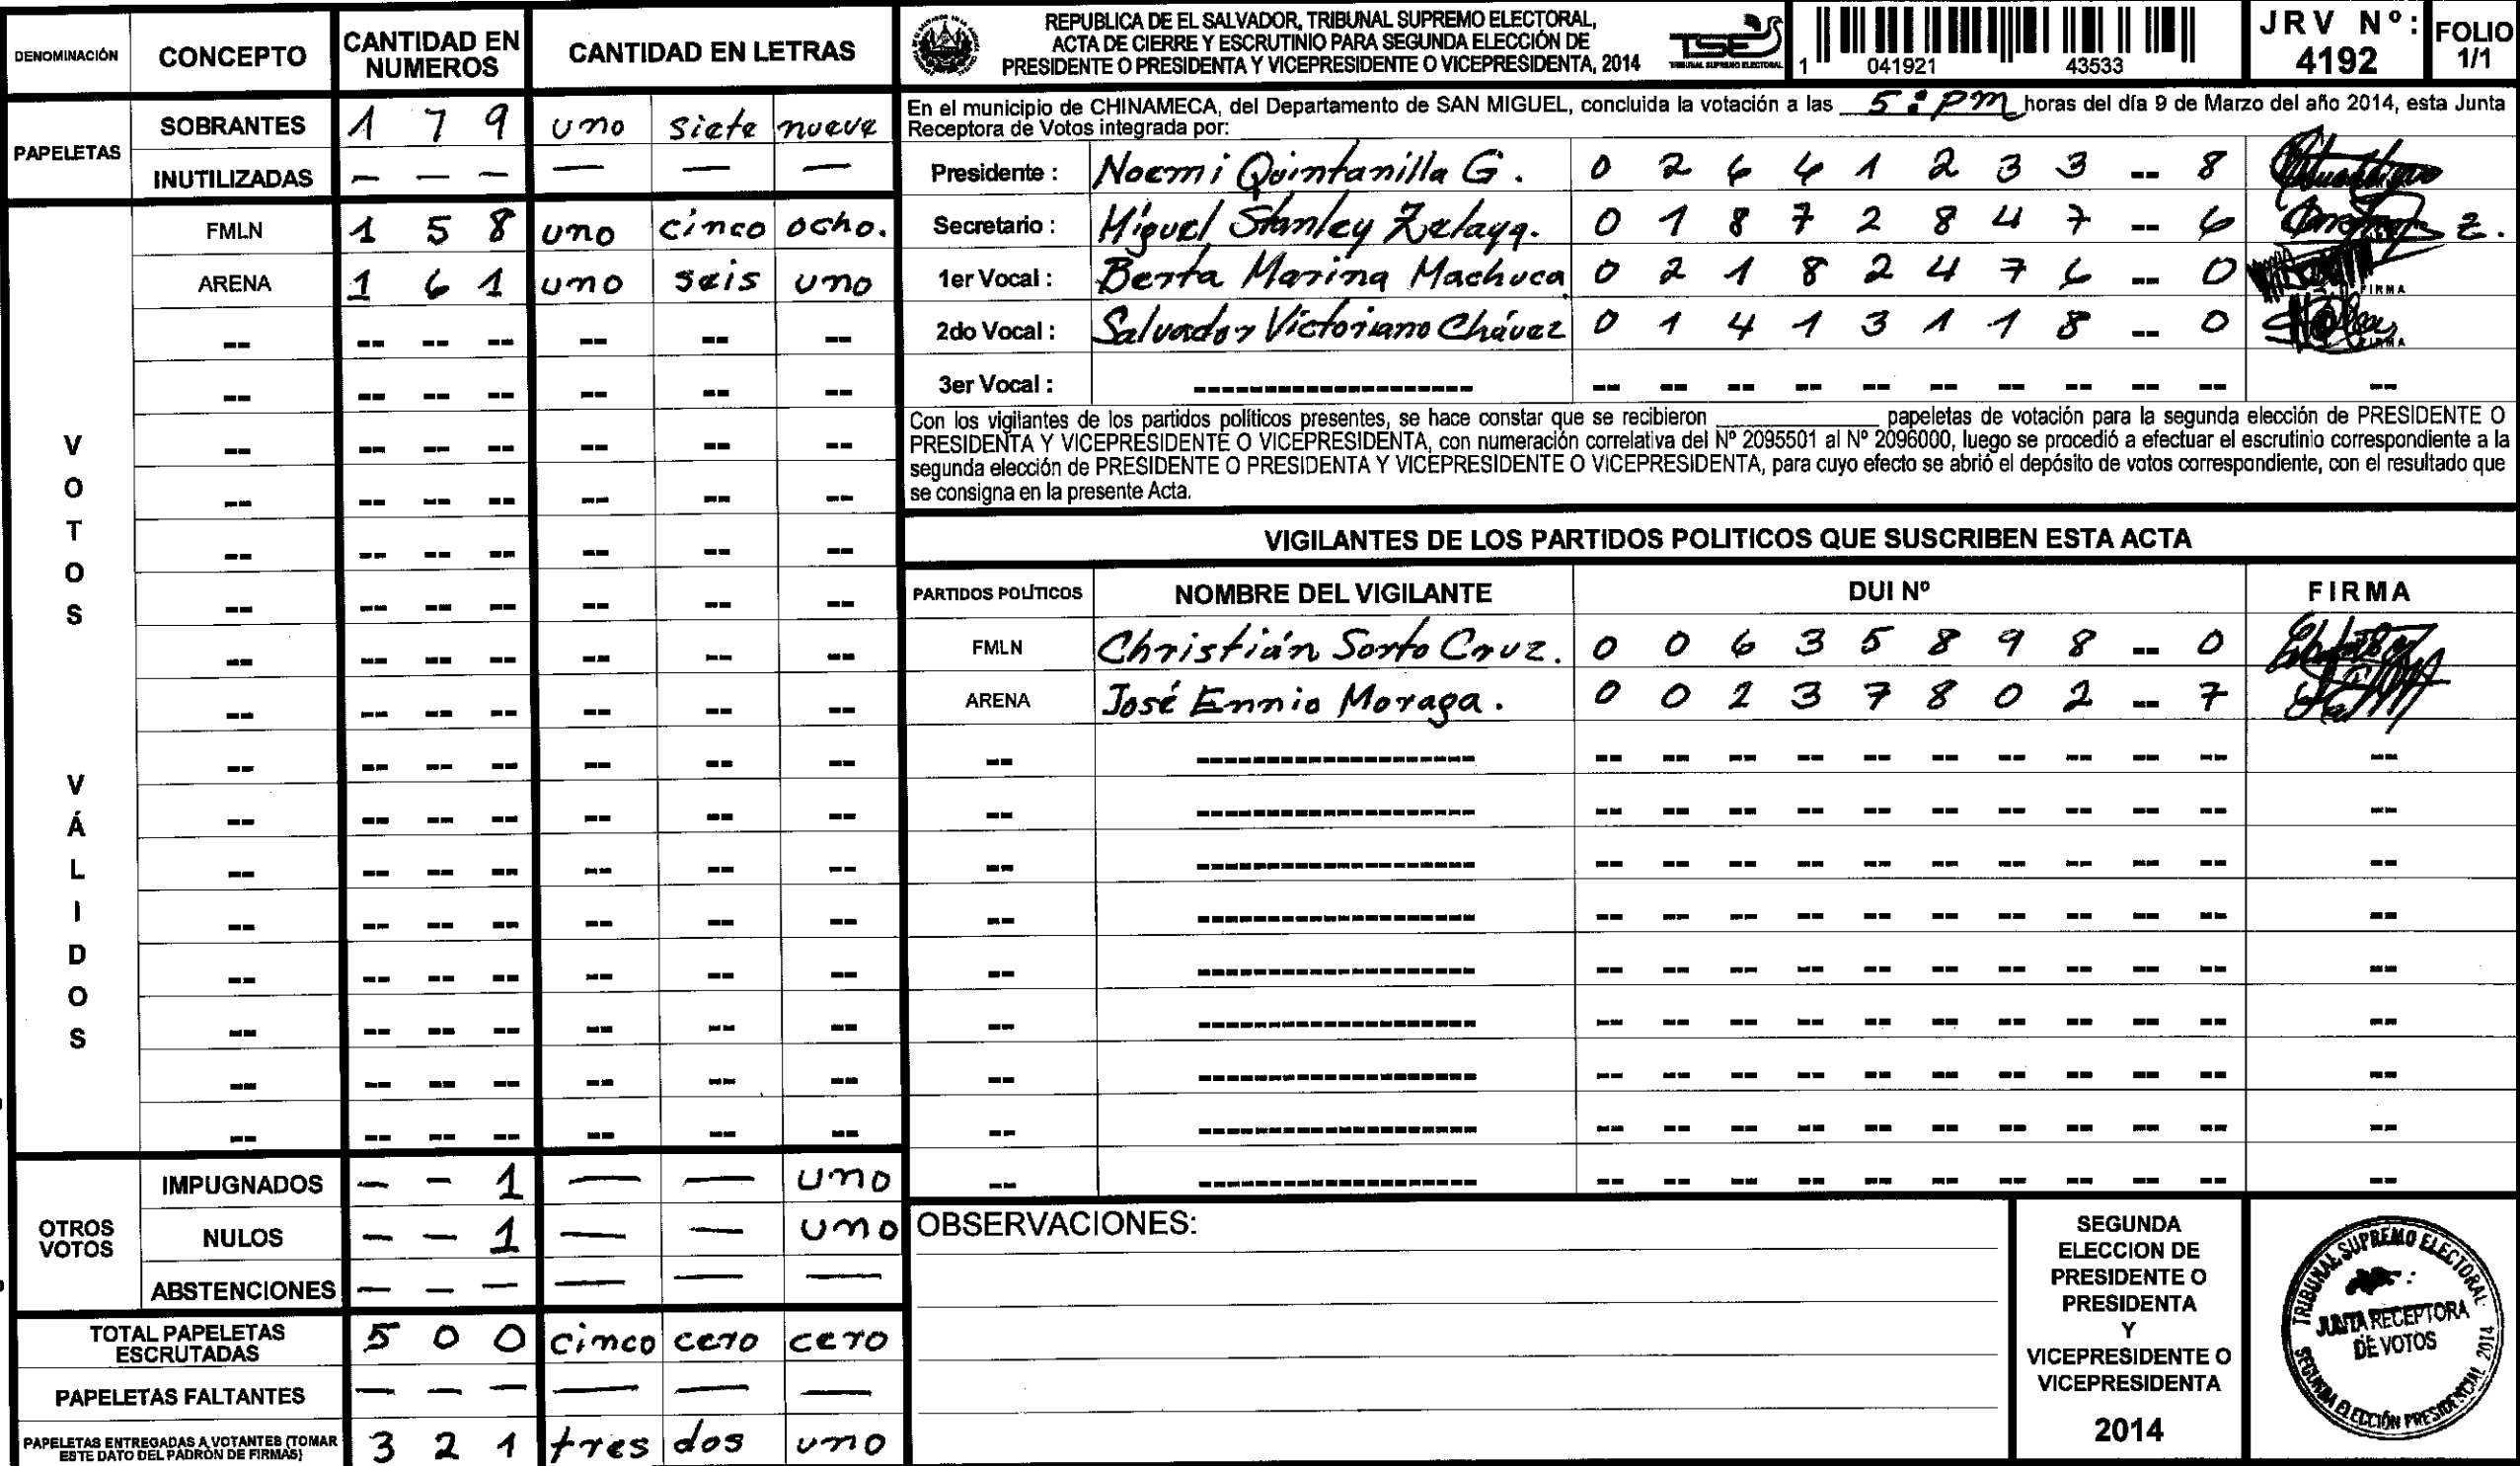 DENOMINACIÓN CONCEPTO CANTIDAD EN NUMEROS CANTIDAD EN LETRAS
PAPELETAS
SOBRANTES 1 7 9 uno siete nueve
INUTILIZADAS — — — — — —
VOTOS VÁLIDOS
FMLN 1 5 8 uno cinco ocho.
ARENA 1 6 1 uno seis uno
OTROS VOTOS
IMPUGNADOS — — 1 — — uno
NULOS — — 1 — — uno
ABSTENCIONES — — — — — —
TOTAL PAPELETAS ESCRUTADAS 5 0 0 cinco cero cero
PAPELETAS FALTANTES — — — — — —
PAPELETAS ENTREGADAS A VOTANTES (TOMAR ESTE DATO DEL PADRÓN DE FIRMAS) 3 2 1 tres dos uno
REPUBLICA DE EL SALVADOR, TRIBUNAL SUPREMO ELECTORAL,
ACTA DE CIERRE Y ESCRUTINIO PARA SEGUNDA ELECCIÓN DE
PRESIDENTE O PRESIDENTA Y VICEPRESIDENTE O VICEPRESIDENTA, 2014
TSE
TRIBUNAL SUPREMO ELECTORAL
1 041921 43533
JRV Nº: 4192
FOLIO 1/1
En el municipio de CHINAMECA, del Departamento de SAN MIGUEL, concluida la votación a las 5:PM horas del día 9 de Marzo del año 2014, esta Junta
Receptora de Votos integrada por:
Presidente : Noemi Quintanilla G. 0 2 6 4 1 2 3 3 -- 8
Secretario : Miguel Stanley Zelaya. 0 1 8 7 2 8 4 7 -- 6
1er Vocal : Berta Marina Machuca 0 2 1 8 2 4 7 6 -- 0
FIRMA
2do Vocal : Salvador Victoriano Chávez 0 1 4 1 3 1 1 8 -- 0
FIRMA
3er Vocal :
Con los vigilantes de los partidos políticos presentes, se hace constar que se recibieron ________ papeletas de votación para la segunda elección de PRESIDENTE O
PRESIDENTA Y VICEPRESIDENTE O VICEPRESIDENTA, con numeración correlativa del Nº 2095501 al Nº 2096000, luego se procedió a efectuar el escrutinio correspondiente a la
segunda elección de PRESIDENTE O PRESIDENTA Y VICEPRESIDENTE O VICEPRESIDENTA, para cuyo efecto se abrió el depósito de votos correspondiente, con el resultado que
se consigna en la presente Acta.
VIGILANTES DE LOS PARTIDOS POLITICOS QUE SUSCRIBEN ESTA ACTA
PARTIDOS POLÍTICOS NOMBRE DEL VIGILANTE DUI Nº FIRMA
FMLN Christián Sorto Cruz. 0 0 6 3 5 8 9 8 -- 0
ARENA José Ennio Moraga. 0 0 2 3 7 8 0 2 -- 7
OBSERVACIONES:
SEGUNDA
ELECCION DE
PRESIDENTE O
PRESIDENTA
Y
VICEPRESIDENTE O
VICEPRESIDENTA
2014
TRIBUNAL SUPREMO ELECTORAL
JUNTA RECEPTORA
DE VOTOS
SEGUNDA ELECCIÓN PRESIDENCIAL 2014